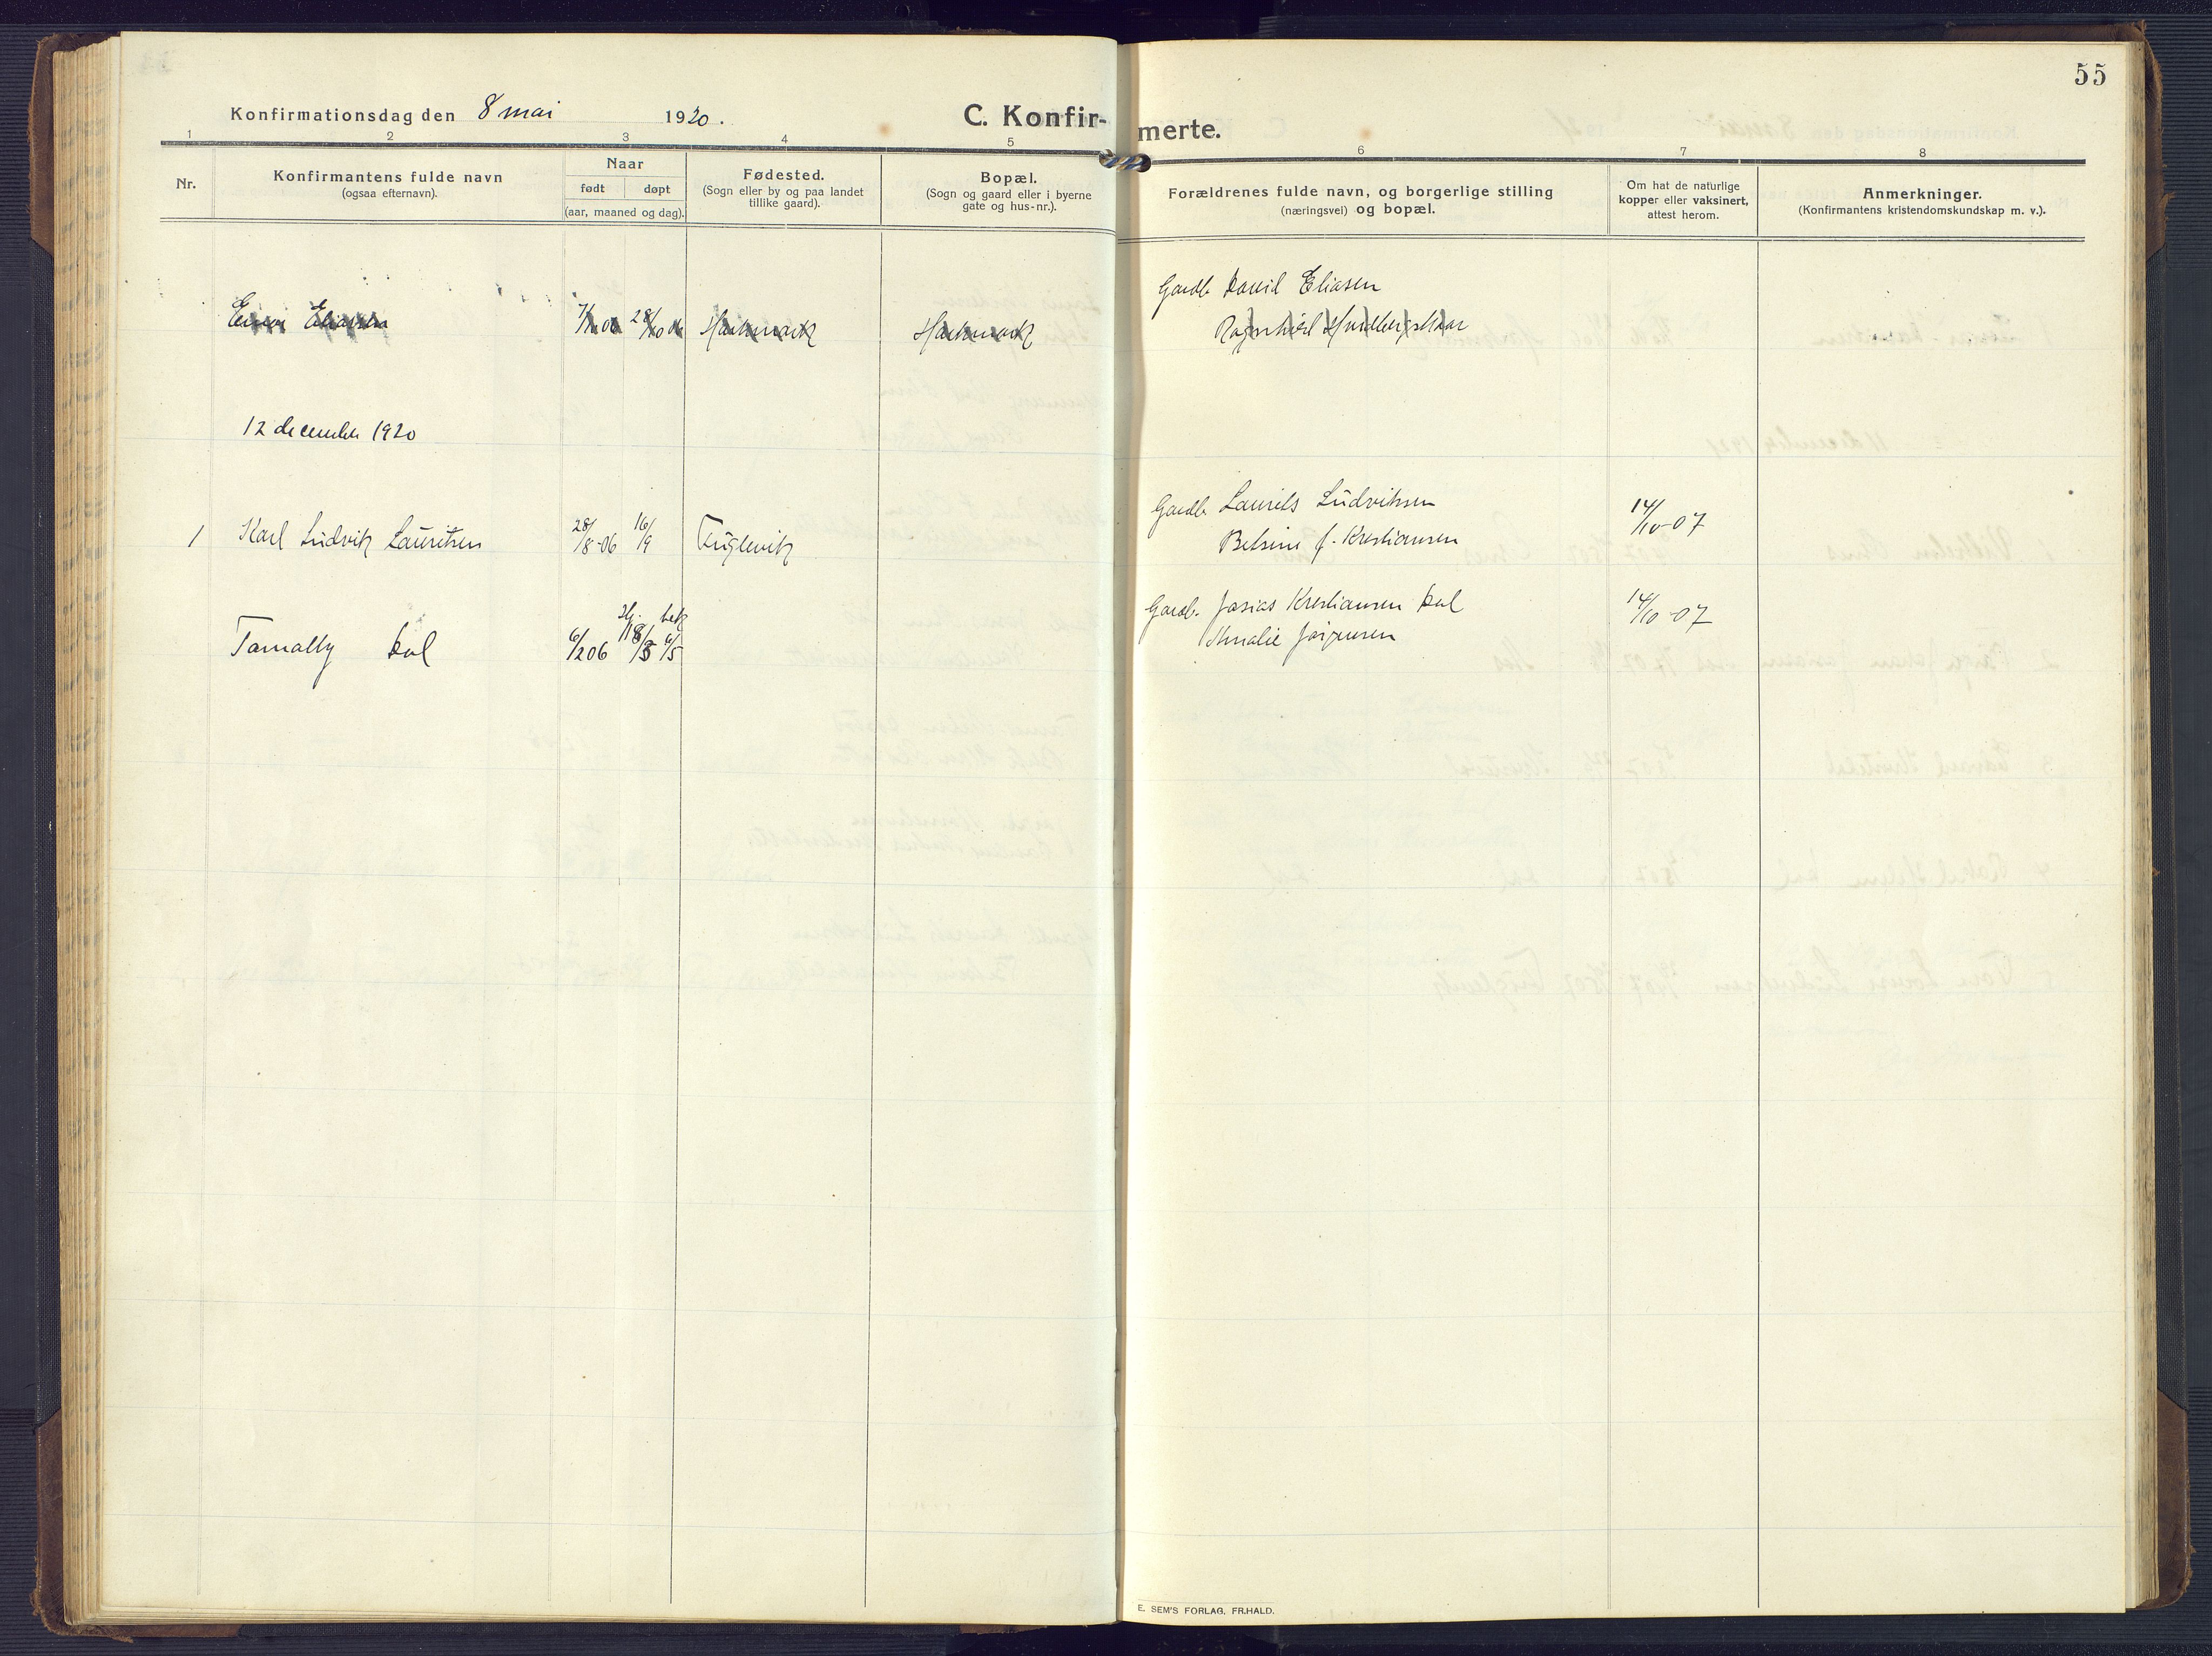 55
Konfirmationsdag den 8 mai 1920.
C. Konfir-
merte.
1 2 3 4 5 6 7 8
Nr.
Konfirmantens fulde navn
(ogsaa efternavn).
Naar
født døpt
(aar, maaned og dag).
Fødested.
(Sogn eller by og paa landet
tillike gaard).
Bopæl.
(Sogn og gaard eller i byerne
gate og hus-nr.).
Forældrenes fulde navn, og borgerlige stilling
(næringsvei) og bopæl.
Om hat de naturlige
kopper eller vaksinert,
attest herom.
Anmerkninger.
(Konfirmantens kristendomskundskap m. v.).
Gaardb David Eliasen
Eliassen Harkmark Harkmark Ragnhild
12 december 1920
Gaardb Laurits Ludviksen 14/10-07
1 Karl Ludvik Lauritsen 28/8-06 16/9 Fuglevik
f. Kristiansen
Gaardb. Josias Kristiansen Dal 14/10-07
Hj. bek
Tomally Dal 6/2 06 18/3 6/5
Amalie Jørgensen
E. SEM'S FORLAG, FR.HALD.